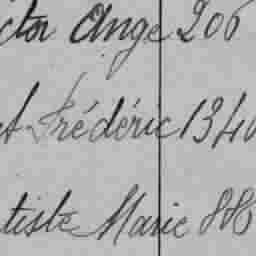 ctor Ange 206
t Frédéric 1340
tiste Marie